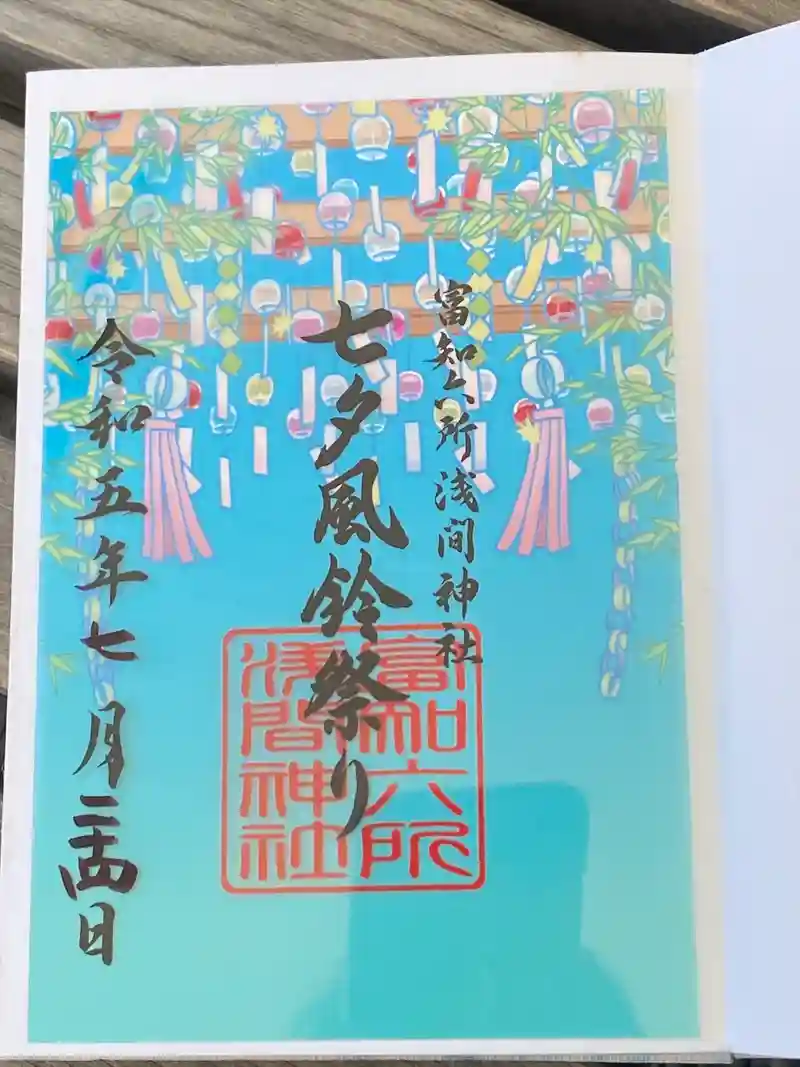 富知六所浅間神社
七夕風鈴祭り
富知六所
浅間神社
令和五年七月二十四日